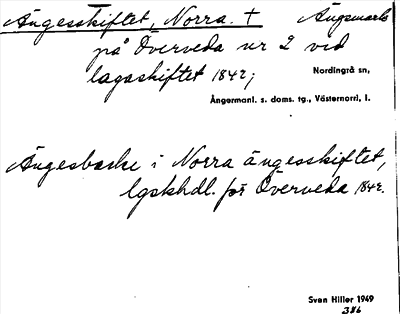 Ängesskiftet, Norra. † Ängsmark
på Överveda nr 2 vid
lagaskiftet 1842;
Nordingrå sn,
Ångermanl. s. doms. tg., Västernorrl, l.
Ängesbacke i Norra ängesskiftet,
lgskhdl. för Överveda 1842.
Sven Hiller 1949